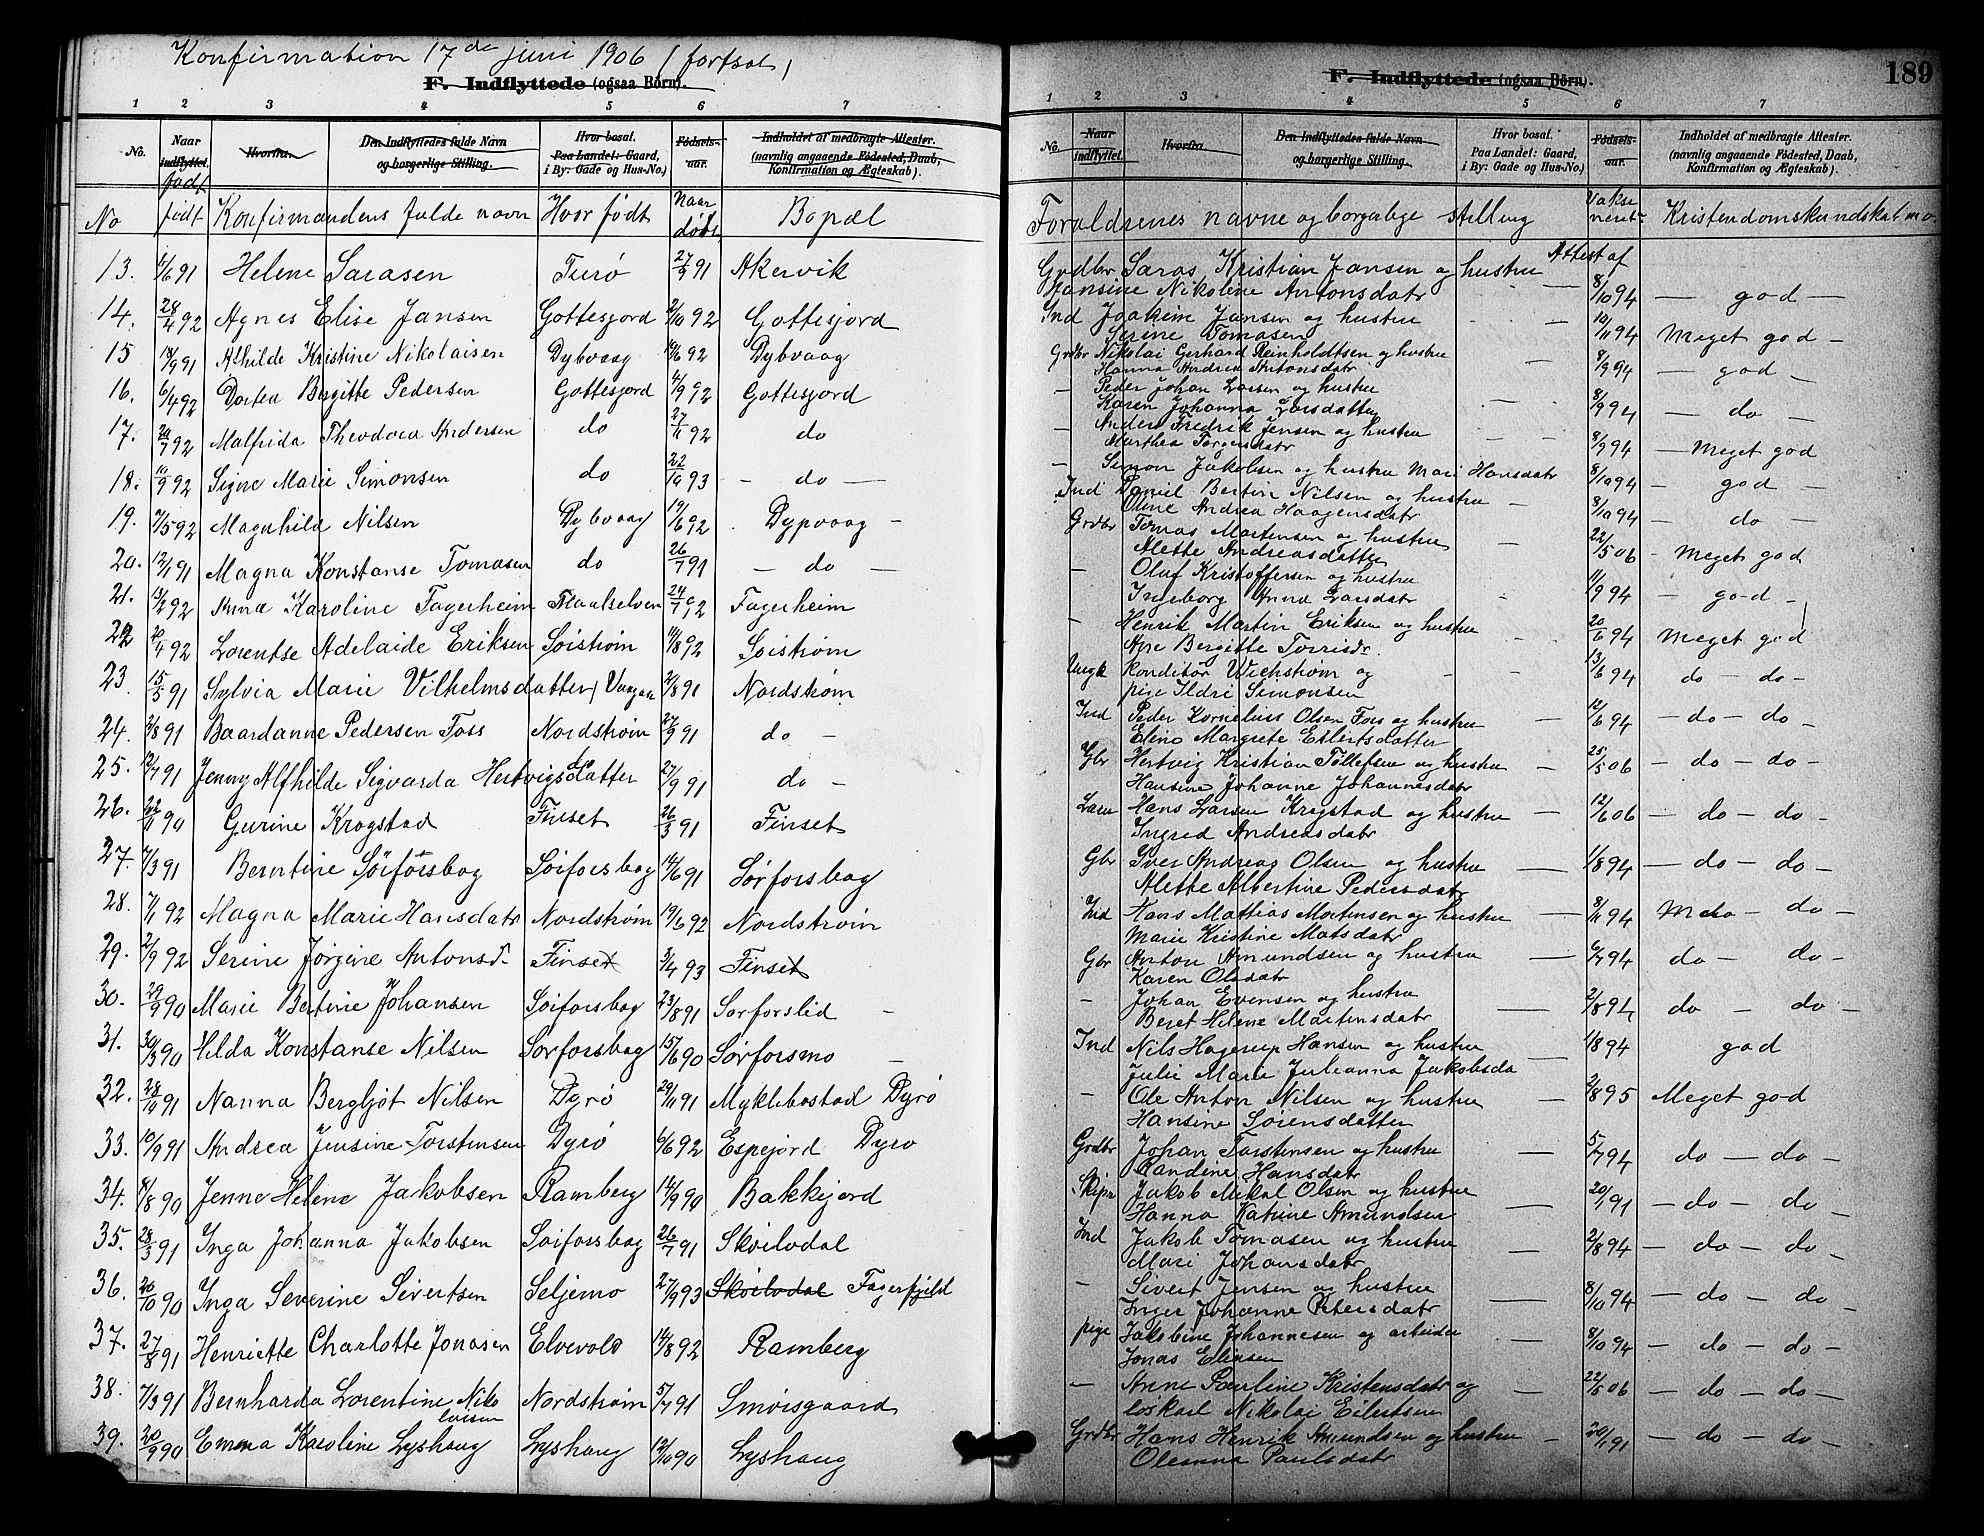 Konfirmation 17de juni 1906 (fortsat)
F. Indflyttede (ogsaa Børn).
1 2 3 4 5 6 7
No. Naar indflyttet. Hvorfra. Den Indflyttedes fulde Navn og borgerlige Stilling. Hvor bosat. Paa Landet: Gaard, i By: Gade og Hus-No.) Fødsels-aar. Indholdet af medbragte Attester. (navnlig angaaende Fødested, Daab, Konfirmation og Ægteskab).
født
No født Konfirmandens fulde navn Hvor født Naar døbt Bopæl
13. 4/6 91 Helene Sarasen Turø 27/9 91 Akervik
14. 28/4 92 Agnes Elise Jansen Gottesjord 2/10 92 Gottesjord
15 18/9 91 Alhilde Kristine Nikolaisen Dybvaag 19/6 92 Dybvaag
16. 6/4 92 Dortea Bergitte Pedersen Gottesjord 4/9 92 Gottesjord
17. 20/7 92 Malfrida Theodora Andersen do 27/11 92 do
18. 10/9 92 Signe Marie Simonsen do 22/10 93 - do -
19. 7/5 92 Magnhild Nilsen Dybvaag 19/6 92 Dypvaag -
20. 12/1 91 Magna Konstanse Tomasen do 26/7 91 - do -
21. 13/2 92 Anna Karoline Fagerheim Maalselven 24/7 92 Fagerheim
22 20/4 92 Lorentse Adelaide Eriksen Soistrøm 14/8 92 Soistrøm
23. 15/5 91 Sylvia Marie Vilhelmsdatter 2/8 91 Nordstrøm
24. 2/8 91 Baardanne Pedersen Foss Nordstrøm 27/9 91 do -
25. 12/7 91 Jenny Alfhilde Sigvarda Hertvigsdatter do 27/9 91 do -
26. 22/11 90 Gurine Krogstad Finset 26/3 91 Finset
27. 7/3 91 Berntine Sørforsbog Soiforsbog 14/6 91 Sørforsbog
28. 7/1 92 Magna Marie Hansdatr Nordstrøm 19/6 92 Nordstrøm
29. 2/9 92 Serine Jørgine Antonsdr Finset 3/4 93 Finset
30. 29/9 90 Marie Bertine Johansen Soiforsbog 23/8 91 Sorforslid -
31. 30/3 90 Hilda Konstanse Nilsen Sorforsbog 15/6 90 Sørforsmo -
32. 28/10 91 Nanna Bergljot Nilsen Dyrø 29/11 91 Myklebostad Dyrø
33. 10/9 91 Andrea Jensine Torstensen Dyrø 6/6 92 Espejord Dyrø
34. 8/8 90 Jenne Helene Jakobsen Ramberg 14/9 90 Bakkejord
35. 28/3 91 Inga Johanna Jakobsen Soiforsbog 26/7 91 Skoelvdal
36. 20/10 90 Inga Severine Sivertsen Seljemo 27/9 93 Skoelvdal Fagerfjeld
37. 27/8 91 Henriette Charlotte Jonasen Elvevold 14/8 92 Ramberg
38. 7/3 91 Bernharda Lorentine Niko Nordstrøm 5/7 91 Smoisgaard
laisen
39. 20/9 90 Emma Karoline Lyshaug Lyshaug 12/10 90 Lyshaug
F. Indflyttede (ogsaa Børn). 189
1 2 3 4 5 6 7
No. Naar indflyttet. Hvorfra Den Indflyttedes fulde Navn og borgerlige Stilling. Hvor bosat. Paa Landet: Gaard, i By: Gade og Hus-No.) Fødsels-aar. Indholdet af medbragte Attester. (navnlig angaaende Fødested, Daab, Konfirmation og Ægteskab).
Foraldrenes navne og borgalige stilling Vaksineret Kristendomskundskab m.v.
Attest af
Grdbr Saras Kristian Jansen og hustru
Hansine Nikoline Antonsdatr - 8/10 94 - god -
Ind Joakim Jansen og hustru
Serine Tomasen - 10/11 94 Meget god -
Grdbr Nikolai Gerhard Reinholdtsen og hustru
Hanna Andrea Antonsdatr - 8/9 94 - god -
- Peder Johan Larsen og hustru
Karen Johanna Larsdatter - 8/9 94 - do -
- Anders Fredrik Jensen og hustru
Marthea Torgersdatr - 8/9 94 - Meget god
- Simon Jakobsen og hustru Mari Hansdatr 8/10 94 - god -
Ind Daniel Bertin Nilsen og hustru
Oline Andrea Haagensdatr - 8/10 94 - do -
Grdbr Tomas Martensen og hustru
Alette Andreasdatter - 22/5 06 - Meget god
- Oluf Kristoffersen og hustru
Ingeborg Anna Larsdatr - 11/9 94 - god -
- Henrik Martin Eriksen og hustru
Ane Bergitte Torrisdr. - 20/6 94 Meget god
Konditor Wichstrøm og
pige Ildri Simonsen - 13/6 94 do - do -
Ind Peder Kornelius Olsen Foss og hustru
Eline Margrete Eilertsdatter - 12/6 94 - do - do -
Gbr Hertvig Kristian Tollefsen og hustru
Hansine Johanne Johannesdatr - 25/5 06 - do - do -
Hans Larsen Krogstad og hustru
Ingred Andreasdatr - 12/6 06 - do - do -
Gbr Iver Andreas Olsen og hustru
Alette Albertine Pedersdatr - 1/8 94 - do - do -
Ind Hans Mattias Mortensen og hustru
Marie Kristine Matsdatr - 8/11 94 M do - do -
Gbr Anton Amundsen og hustru
Karen Olsdatr - 6/7 94 do - do -
- Johan Evensen og hustru
Beret Helene Martinsdatr - 2/8 94 do - do -
Ind Nils Hagerup Hansen og hustru
Julie Marie Julianna Jakobsda - 1/8 94 god
- Ole Anton Nilsen og hustru
Hansine Sørensdatter - 2/8 95 Meget god
Grdbr Johan Torstensen og hustru
Randine Hansdatr - 5/7 94 do - do -
Skipr Jakob Mikal Olsen og hustru
Hanna Katrine Amundsen - 20/1 91 - do - do -
Ind Jakob Tomasen og hustru
Mari Johansdatr - 2/8 94 - do - do -
- Sivert Jensen og hustru
Inger Johanne Petersdatr - 8/10 94 - do - do -
pige Jakobine Johannesen og arbeider
Jonas Eliasen - 8/10 94 - do - do -
- Anne Pauline Kristensdatr og
løskarl Nikolai Eilertsen - 22/5 06 - do - do -
Grdbr Hans Henrik Amundsen og hustru
Oleanna Paulsdatr - 20/1 91 - do - do -